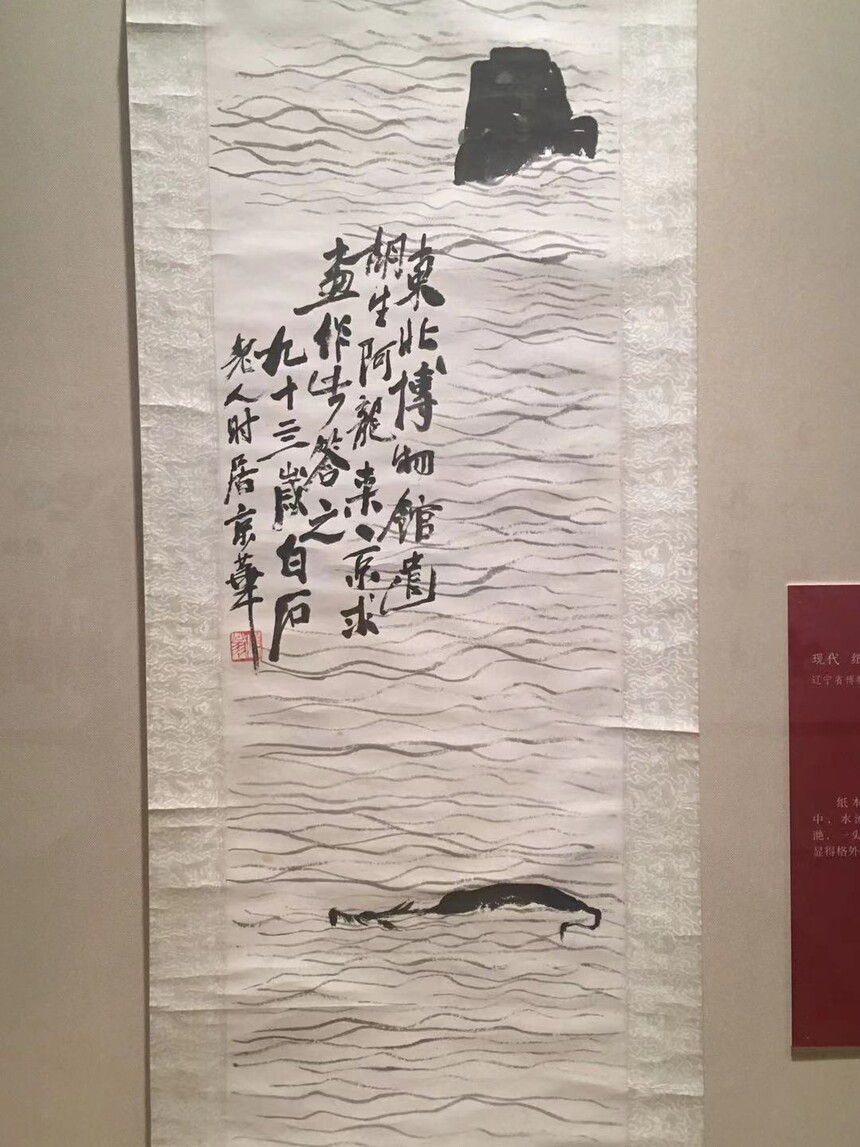 東北博物館遣
胡生阿龍來京求
畫作此答之
九十三歲白石
老人时居京華
现代 纸
辽宁省博
纸本
中，水
滟，一头
显得格外